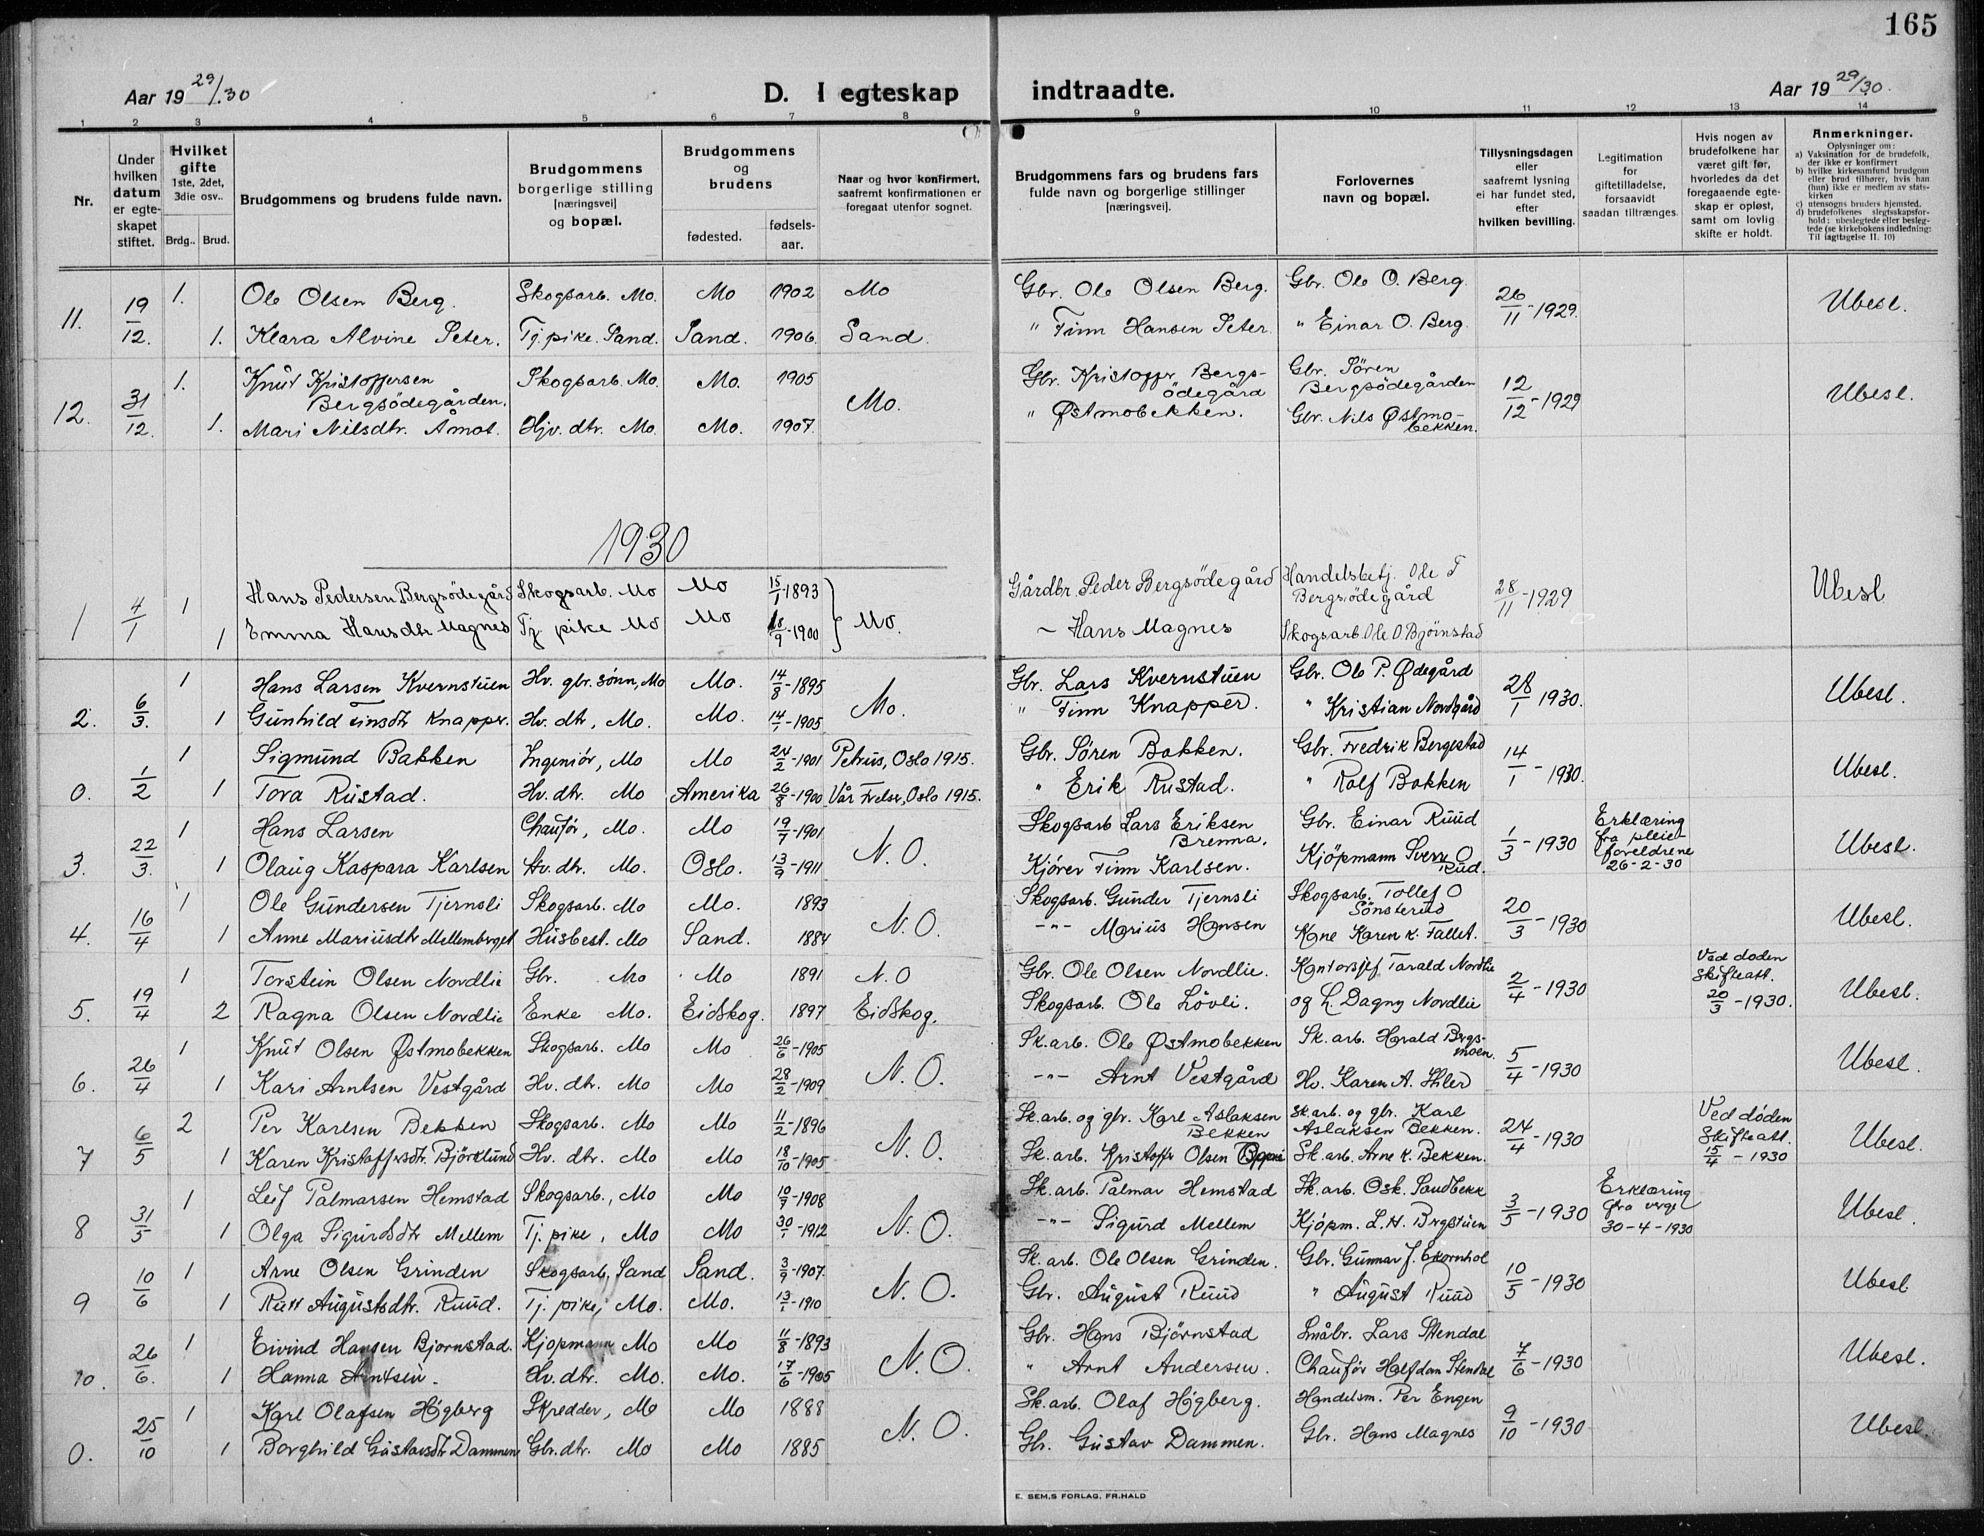 165
Aar 19 29/30
D. I egteskap indtraadte.
Aar 19 29/30.
1 2 3 4 5 6 7 8 9 10 11 12 13 14
Nr.
Under hvilken datum er egteskapet stiftet.
Hvilket gifte 1ste, 2det, 3die osv..
Brdg.. Brud.
Brudgommens og brudens fulde navn.
Brudgommens borgerlige stilling [næringsvei] og bopæl.
Brudgommens og brudens
fødested. fødselsaar.
Naar og hvor konfirmert, saafremt konfirmationen er foregaat utenfor sognet.
Brudgommens fars og brudens fars fulde navn og borgerlige stillinger [næringsvei].
Forlovernes navn og bopæl.
Tillysningsdagen eller saafremt lysning ei har fundet sted, efter hvilken bevilling.
Legitimation for giftetilladelse, forsaavidt saadan tiltrænges.
Hvis nogen av brudefolkene har været gift før, hvorledes da det foregaaende egteskap er opløst, samt om lovlig skifte er holdt.
Anmerkninger.
Oplysninger om:
a) Vaksination for de brudefolk, der ikke er konfirmert
b) hvilke kirkesamfund brudgom eller brud tilhører, hvis han (hun) ikke er medlem av statskirken
c) utensogns bruders hjemsted.
d) brudefolkenes slegtsskapsforhold; ubeslegtede eller beslegtede (se kirkebokens indledning: Til iagttagelse II. 10)
11. 19/12. 1. Ole Olsen Berg. Skogsarb. Mo. Mo 1902 Mo Gbr. Ole Olsen Berg. Gbr. Ole O. Berg. 26/11-1929. Ubesl.
1. Klara Alvine Seter. Tj. pike. Sand. Sand. 1906. Sand. " Finn Hansen Seter. " Einar O. Berg.
12. 31/12. 1. Knut Kristoffersen Bergsödegården. Skogsarb. Mo. Mo. 1905 Mo. Gbr. Kristoffer Bergsödegård Gbr. Sören Bergsödegården 12/12-1929 Ubesl.
1. Mari Nilsdtr. Åmot. Hjv. dtr. Mo. Mo. 1907. " Østmobekken. Gbr. Nils Østmobekken.
1930
1 4/1 1 Hans Pedersen Bergsödegård Skogsarb. Mo Mo 15/1-1893 Mo. Gårdbr. Peder Bergsödegård Handelsbetj. Ole T Bergsödegård 28/11-1929 Ubesl
1 Emma Hansdtr Magnes Tj. pike Mo Mo 18/9-1900 - Hans Magnes Skogsarb. Ole O. Bjørnstad
2. 6/3. 1 Hans Larsen Kvernstuen Hv. gbr. sönn, Mo Mo. 14/8-1895 Mo. Gbr. Lars Kvernstuen Gbr. Ole P. Ødegård 28/1 1930. Ubesl.
1 Gunhild Finsdtr Knapper. Hv. dtr, Mo. Mo. 14/1-1905 " Finn Knapper. " Kristian Nordgård
0. 1/2 1 Sigmund Bakken Ingeniör, Mo Mo 24/2-1901 Petrus, Oslo 1915. Gbr. Sören Bakken. Gbr. Fredrik Bergestad 14/1-1930. Ubesl.
1 Tora Rustad. Hv. dtr. Mo Amerika 26/8-1900 Vår Frelser, Oslo 1915. " Erik Rustad. " Rolf Bakken
3. 22/3. 1 Hans Larsen Chauför, Mo. Mo 19/7-1901 N. O. Skogsarb Lars Eriksen Brenna. Gbr. Einar Ruud 1/3-1930 Erklæring fra pleieforeldrene 26-2-30 Ubesl.
1 Olaug Kaspara Karlsen Hv. dtr. Mo Oslo. 13/9-1911 Kjörer Finn Karlsen. Kjöpmann Sverr O Rud.
4. 16/4 1 Ole Gundersen Tjernsli Skogsarb. Mo Mo. 1893 N. O. Skogsarb. Gunder Tjernsli Skogsarb. Tollef O Sönsterud 20/3-1930 Ubesl.
1 Anne Mariusdtr Mellemberget Husbest. Mo Sand. 1884 -"- Marius Hansen Kone Karen K. Fallet.
5. 19/4 1 Torstein Olsen Nordlie Gbr. Mo Mo 1891 N. O Gbr. Ole Olsen Nordlie. Kontorsjef Tarald Nordlie 2/4-1930 Ved döden Skifteatt. 20/3-1930. Ubesl.
2 Ragna Olsen Nordlie Enke Mo. Eidskog. 1897 Eidskog. Skogsarb. Ole Lövli. og L. Dagny Nordlie
6. 26/4 1 Knut Olsen Østmobekken Skogsarb. Mo Mo 26/6-1905 N. O. Sk. arb. Ole Østmobekken Sk. arb. Harald Brgsmoen. 5/4-1930 Ubesl.
1 Kari Arntsen Vestgård Hv. dtr. Mo Mo 28/2-1909 -"- Arnt Vestgård Hv. Karen A. Ihler
7 6/5 2 Per Karlsen Bekken Skogsarb. Mo Mo 11/2-1896 N. O. Sk. arb. og gbr. Karl Aslaksen Bekken Sk. arb. og gbr. Karl Aslaksen Bekken. 24/4-1930 Ved döden Skifteatt. 15/4-1930 Ubesl.
1 Karen Kristoffersdtr. Björklund Hv. dtr. Mo Mo 18/10-1905 Sk. arb. Kristoffr Olsen Sk. arb. Arne K. Bekken.
8 31/5 1 Leif Palmarsen Hemstad Skogsarb., Mo Mo 10/7-1908 N. O. Sk. arb. Palmar Hemstad Sk. arb. Osk. Sandbekk 3/5-1930 Erklæring fra verge 30-4-1930 Ubesl.
1 Olga Sigurdsdtr Mellem Tj. pike, Mo Mo 30/1-1912 -"- Sigurd Mellem Kjöpm. L. H. Brgstuen
9 10/6 1 Arne Olsen Grinden Skogsarb. Sand Sand. 3/9-1907. N. O. Sk. arb. Ole Olsen Grinden. Gbr. Gunnar J. Ekornhol 10/5-1930 Ubesl
1 Rutt Augustsdtr. Ruud. Tj. pike, Mo. Mo. 13/1-1910 Gbr. August Ruud " August Ruud
10. 26/6. 1 Eivind Hansen Bjornstad. Kjopmann Mo Mo 11/8-1893 N. O. Gbr. Hans Björnstad Småbr. Lars Stendal 7/6-1930 Ubesl.
1 Hanna Arntsen. Hv. dtr. Mo. Mo. 17/6-1905 " Arnt Andersen. Chauför Halfdan Stendal
0. 25/10 1 Karl Olafsen Högberg Skredder, Mo Mo 1888 N. O. Sk. arb. Olaf Högberg. Handelsm. Per Engen 9/10-1930 Ubesl.
1 Borghild Gustavsdtr Dammen Gbr. dtr. Mo Mo 1885 Gbr. Gustav Dammen. Gbr. Hans Magnes
E. SEM.S FORLAG, FR.HALD